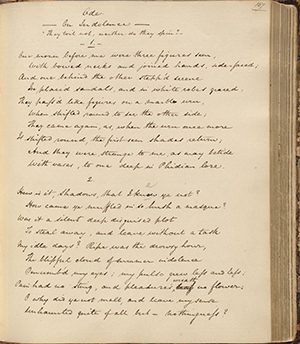 Ode
— On Indolence —
"They toil not, neither do they spin."
1
One morn before me were three figures seen,
With bowed necks and joined hands, side-faced;
And one behind the other stepp'd serene
In placid sandals, and in white robes graced.
They pass'd like figures on a marble urn,
When shifted round to see the other side;
They came again, as, when the urn once more
Is shifted round, the first seen shades return,
And they were strange to me as may betide
With vases, to one deep in Phidian lore.
2
How is it, Shadows, that I knew ye not?
How came ye muffled in so hush a masque?
Was it a silent deep disguised plot
To steal away, and leave without a task
My idle days? Ripe was the drowsy hour,
The blissful cloud of summer indolence
Benumbed my eyes; my pulse grew less and less;
Pain had no sting, and pleasure's wreath no flower;
O why did ye not melt, and leave my sense
Unhaunted quite of all but — nothingness?